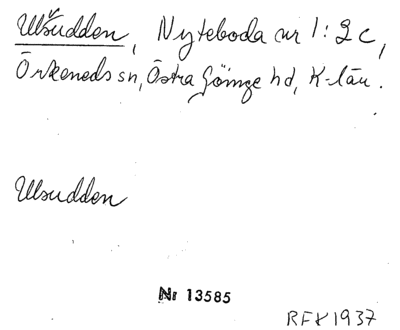 Ulvsudden, Nyteboda nr 1:2c,
Örkeneds sn, Östra Göinge hd, K-län.
Ulvsudden
Nr 13585
1937